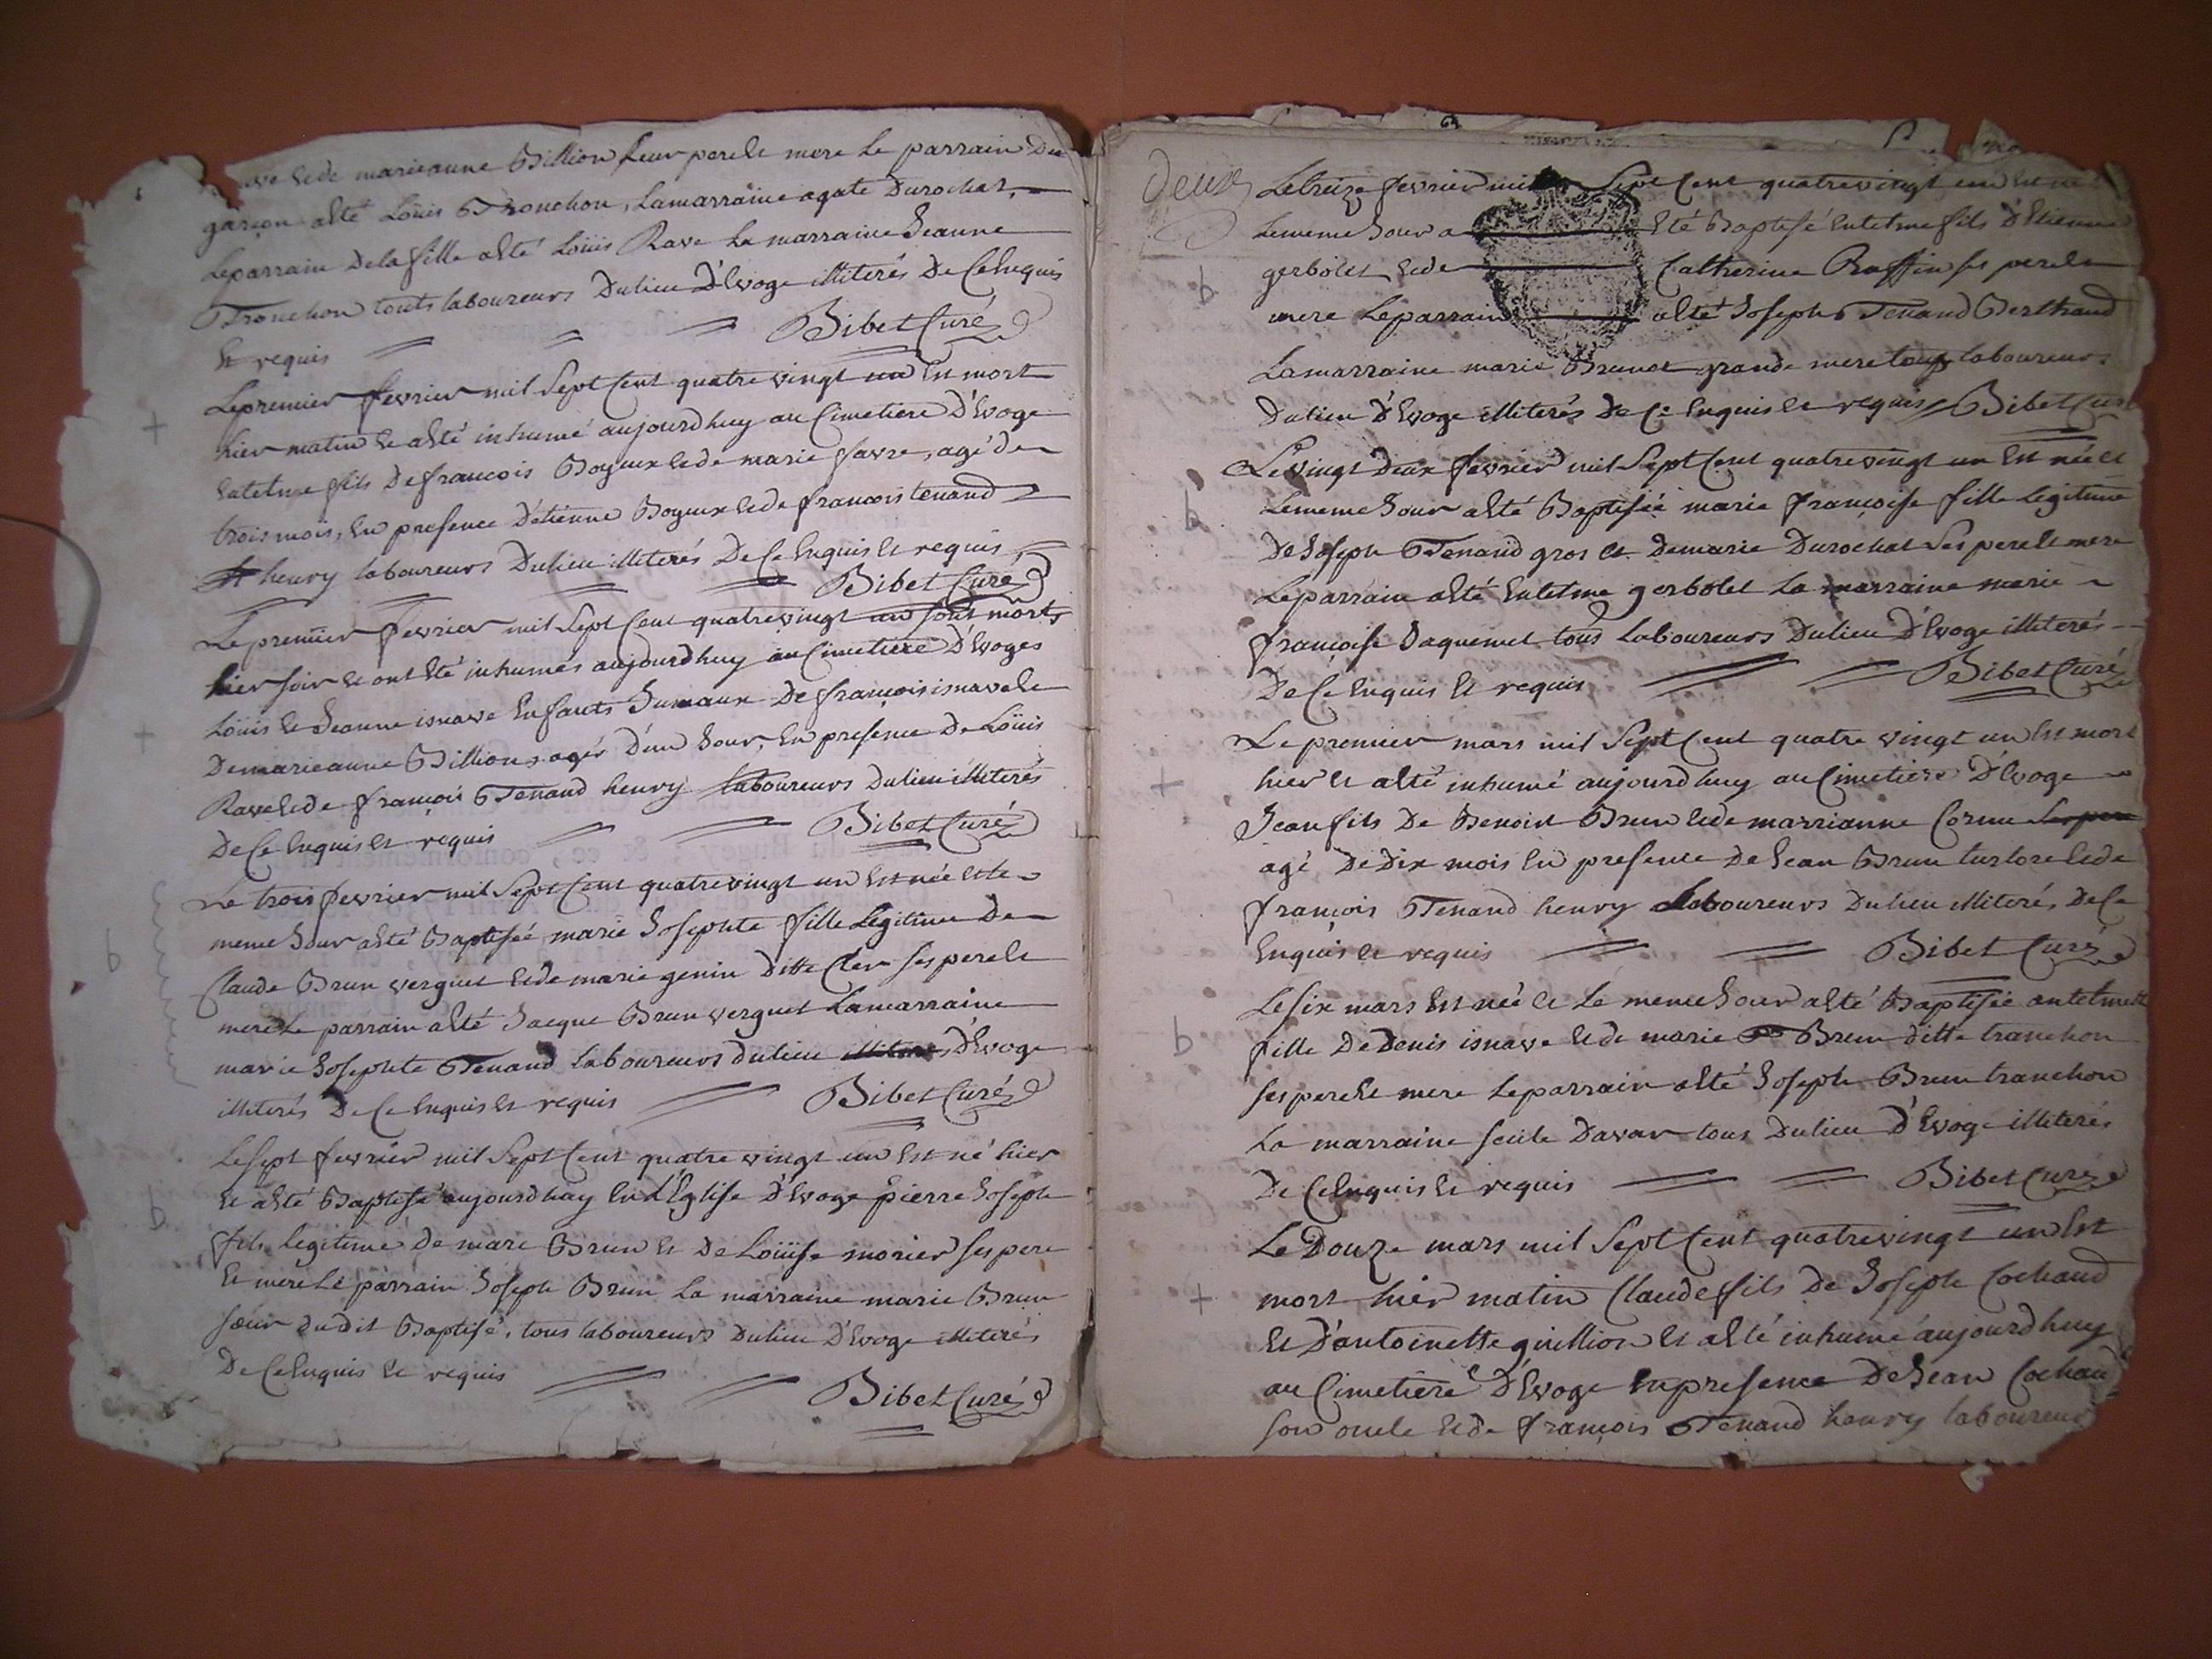 et de marieanne Billion leur pere et mere Le parrain du
garçon a été Loüis Tronchon, La marraine agate Durochat,
Le parrain de la fille a été Loüis Rave La marraine Jeanne
Tronchon touts laboureurs du lieu d'Evoge illiterés de ce enquis
et requis Bibet Curé
Le premier fevrier mil sept cent quatre vingt un est mort
hier matin et a été inhumé aujourdhuy au Cimetiere d'Evoge
entelme fils de françois Boyeux et de marie favre, agé de
trois mois, en presence d'étienne Boyeux et de francois tenand
henry laboureurs du lieu illiterés de ce enquis et requis,
Bibet Curé
Le premier fevrier mil sept cent quatre vingt un sont morts
hier soir et ont été inhumés aujourdhuy au Cimetiere d'Evoges
Loüis et Jeanne isnave enfants Jumaux de françois isnave et
de marieanne Billion agés d'un Jour, en presence de Loüis
Rave et de françois Tenand henry laboureurs du lieu illiterés
de ce enquis et requis Bibet Curé
Le trois fevrier mil sept cent quatre vingt un est née et le
meme Jour a été Baptisée marie Josephte fille Legitime de
Claude Brun verguet et de marie genin ditte Cler ses pere et
mere Le parrain a été Jacque Brun verguet La marraine
marie Josephte Tenand laboureurs du lieu d'Evoge
illiterés de ce enquis et requis Bibet Curé
Le sept fevrier mil sept cent quatre vingt un est né hier
et a été Baptisé aujourdhuy en L'Eglise d'Evoge pierre Joseph
fils Legitime de marc Brun et de Loüise morier ses pere
et mere Le parrain Joseph Brun La marraine marie Brun
sœur du dit Baptisé, tous laboureurs du lieu d'Evoge illiterés
de ce enquis et requis
Bibet Curé
deux
Le treize fevrier mil sept cent quatre vingt un est né
Le meme Jour a été Baptisé entelme fils d'Etienne
gerbolet et de Catherine Ruffin ses pere et
mere Le parrain a été Joseph Tenand Berthaud
La marraine marie Brunet grande mere tous laboureurs
du lieu d'Evoge illiterés de ce enquis et requis Bibet Curé
Le vingt deux fevrier mil sept cent quatre vingt un est née et
Le meme Jour a été Baptisée marie françoise fille Legitime
de Joseph Tenand gros et de marie Durochat ses pere et mere
Le parrain a été entelme gerbolet La marraine marie
françoise Jaquemet tous Laboureurs du lieu d'Evoge illiterés
de ce enquis et requis Bibet Curé
Le premier mars mil sept cent quatre vingt un est mort
hier et a été inhumé aujourdhuy au Cimetiere d'Evoge
Jean fils de Benoit Brun et de marrianne Cornu ses pere
agé de dix mois en presence de Jean Brun turlore et de
françois Tenand henry Laboureurs du lieu illiterés de ce
enquis et requis Bibet Curé
Le six mars est née et Le meme Jour a été Baptisée antelmette
fille de Denis isnave et de marie Brun ditte tranchon
ses pere et mere Le parrain a été Joseph Brun tranchon
La marraine Davar tous du lieu d'Evoge illiterés
de ce enquis et requis Bibet Curé
Le Douze mars mil sept cent quatre vingt un est
mort hier matin Claude fils de Joseph Cochaud
et d'antoinette guillion et a été inhumé aujourdhuy
au Cimetiere d'Evoge en presence de Jean Cochaud
son oncle et de françois Tenand henry laboureurs